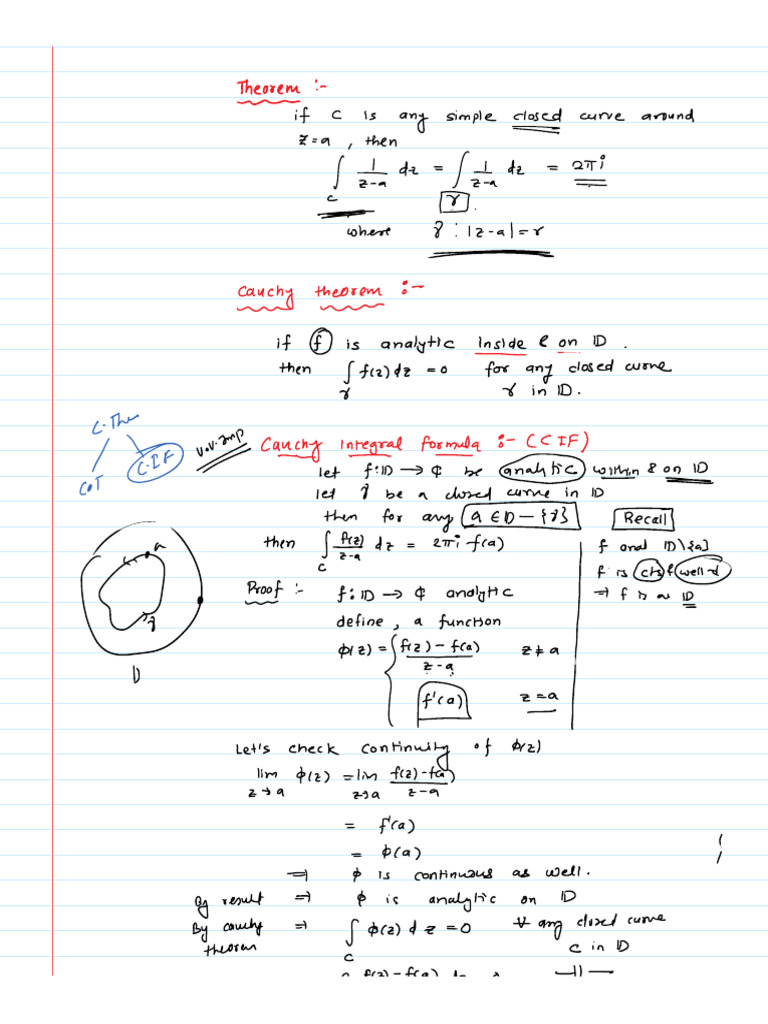 Theorem :-
if C is any simple closed curve around
z=a , then
∫_C 1/(z-a) dz = ∫_γ 1/(z-a) dz = 2πi
where γ : |z-a|=r
Cauchy theorem :-
if f is analytic inside & on D .
then ∫_γ f(z)dz = 0 for any closed curve
γ in D.
C.The
C.I.F
CGT
V.V.Imp
Cauchy Integral formula :- (CIF)
let f:D → ¢ be analytic within & on D
let γ be a closed curve in D
then for any a ∈ D - {γ}
Recall
then ∫_C f(z)/(z-a) dz = 2πi f(a)
f on D\{a}
f is cts & well-d
⇒ f is a D
a
γ
D
Proof :- f:D → ¢ analytic
define , a function
φ(z) = { (f(z) - f(a))/(z-a) z≠a
f'(a) z=a
Let's check continuity of φ(z)
lim_{z→a} φ(z) = lim_{z→a} (f(z)-f(a))/(z-a)
= f'(a)
= φ(a)
⇒ φ is continuous as well.
By result ⇒ φ is analytic on D
By cauchy ⇒ ∫_C φ(z) dz = 0 ∀ any closed curve
theorem C in D
f(z)-f(a) dz —||—